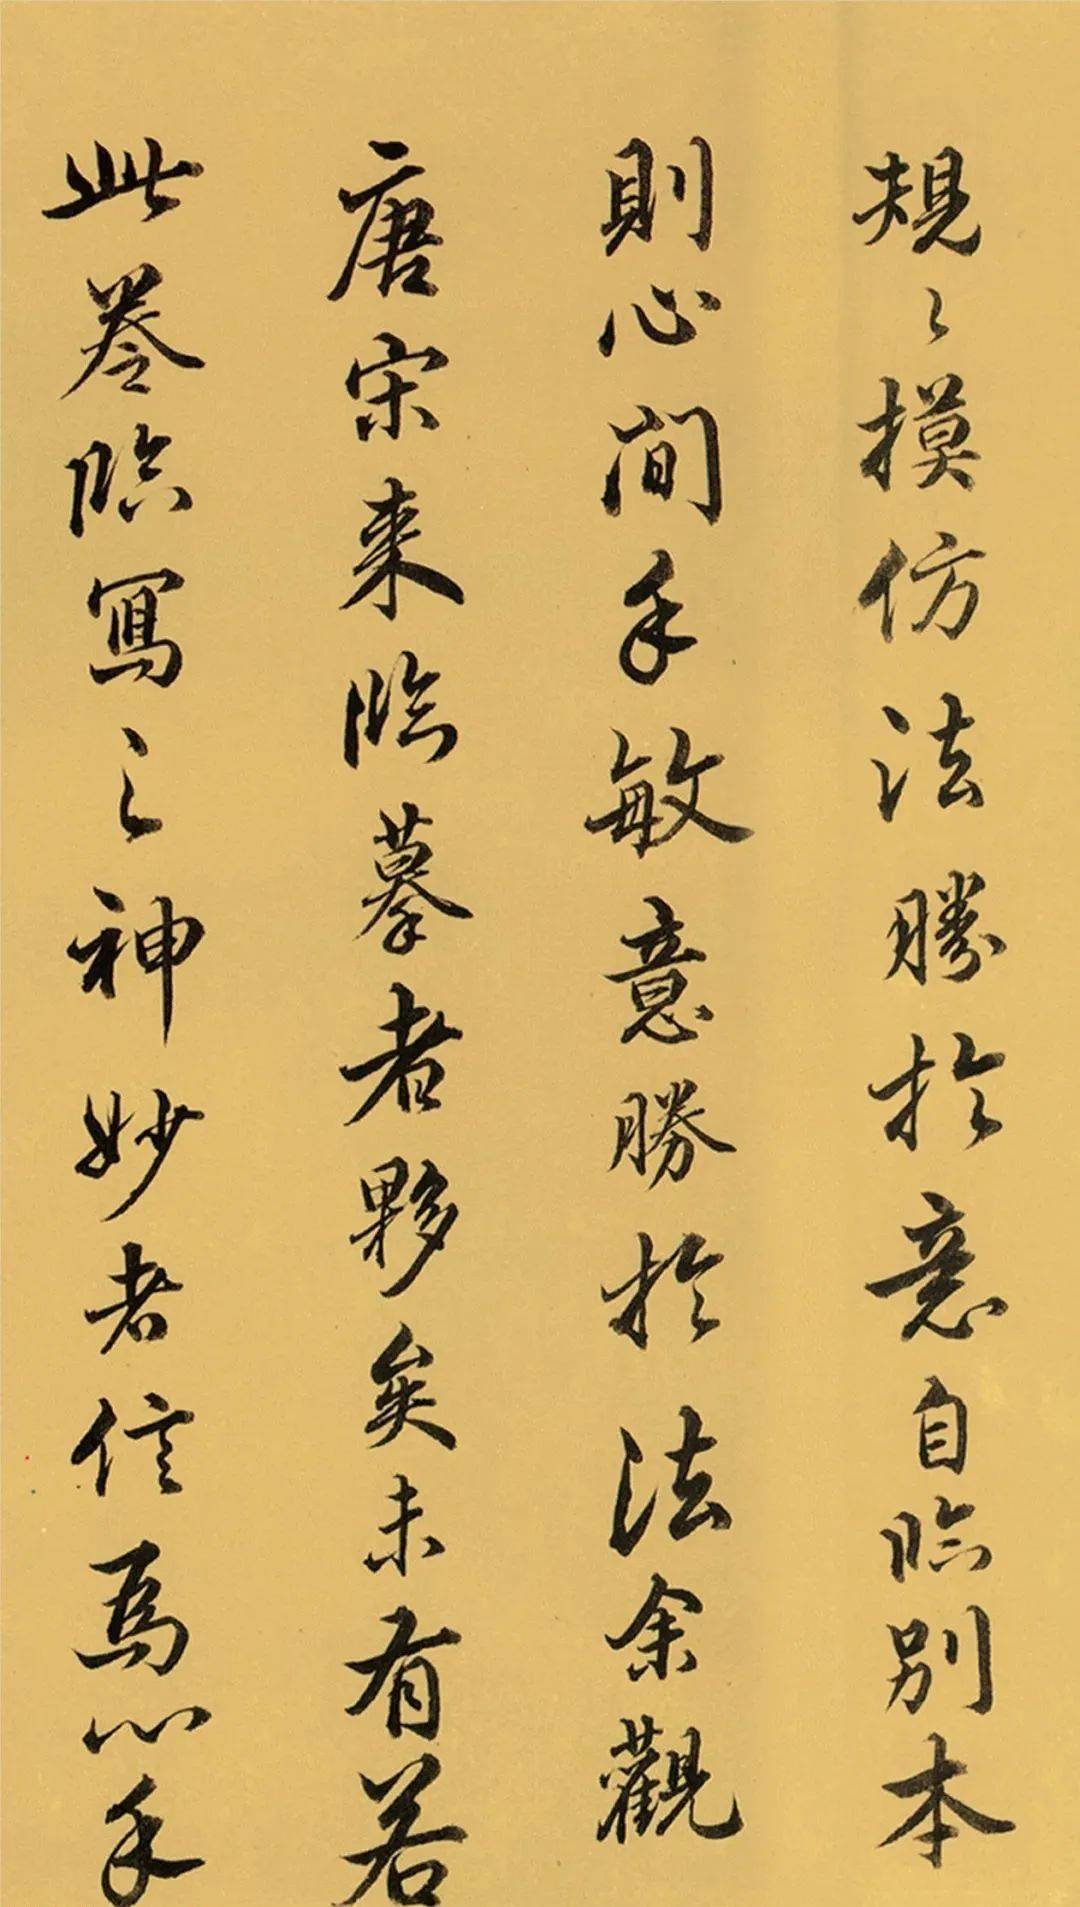 規〻摸仿法勝於意自臨別本
則心閒手敏意勝於法余觀
唐宋来臨摹者夥矣未有若
此卷臨寫之神妙者信爲心手